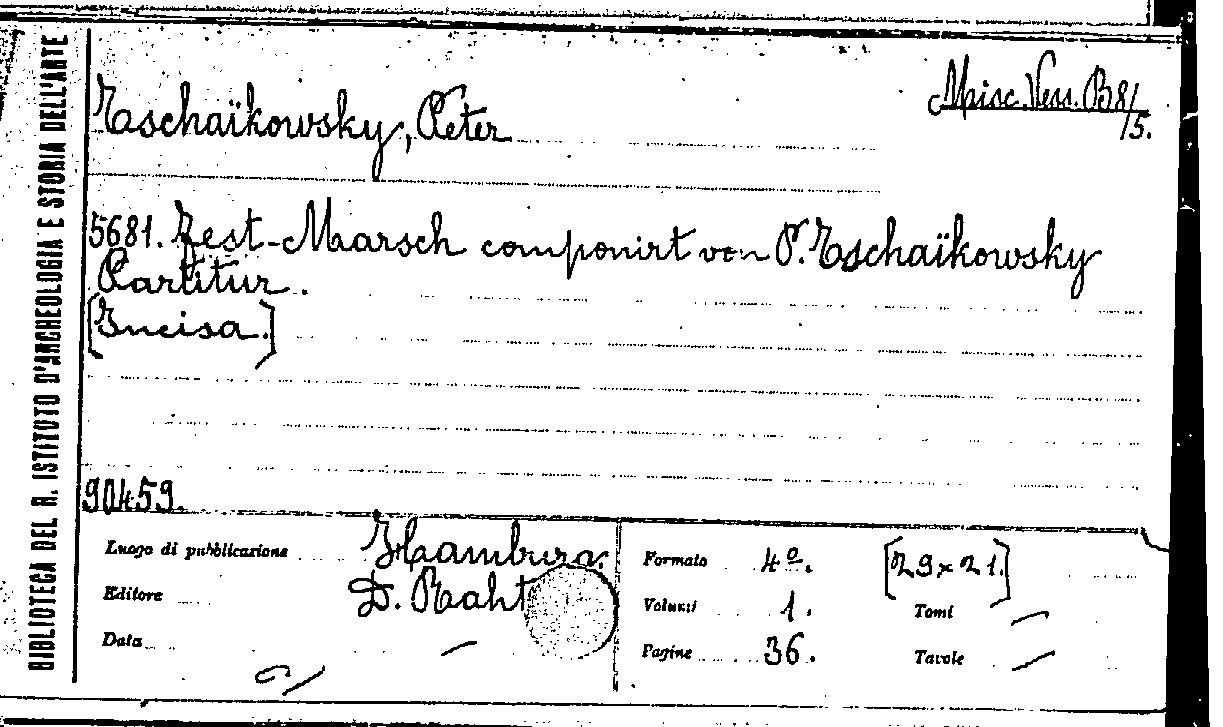 BIBLIOTECA DEL R. ISTITUTO D'ARCHEOLOGIA E STORIA DELL'ARTE
Misc. Vess. B 81/5.
Tschaïkowsky, Peter
5681. Fest-Marsch componirt von P. Tschaïkowsky
Partitur.
[Incisa.]
90459.
Luogo di pubblicazione Hamburg.
Editore D. Raht
Data —
Formato 4º. [29×21.]
Volumi 1. Tomi —
Pagine 36. Tavole —